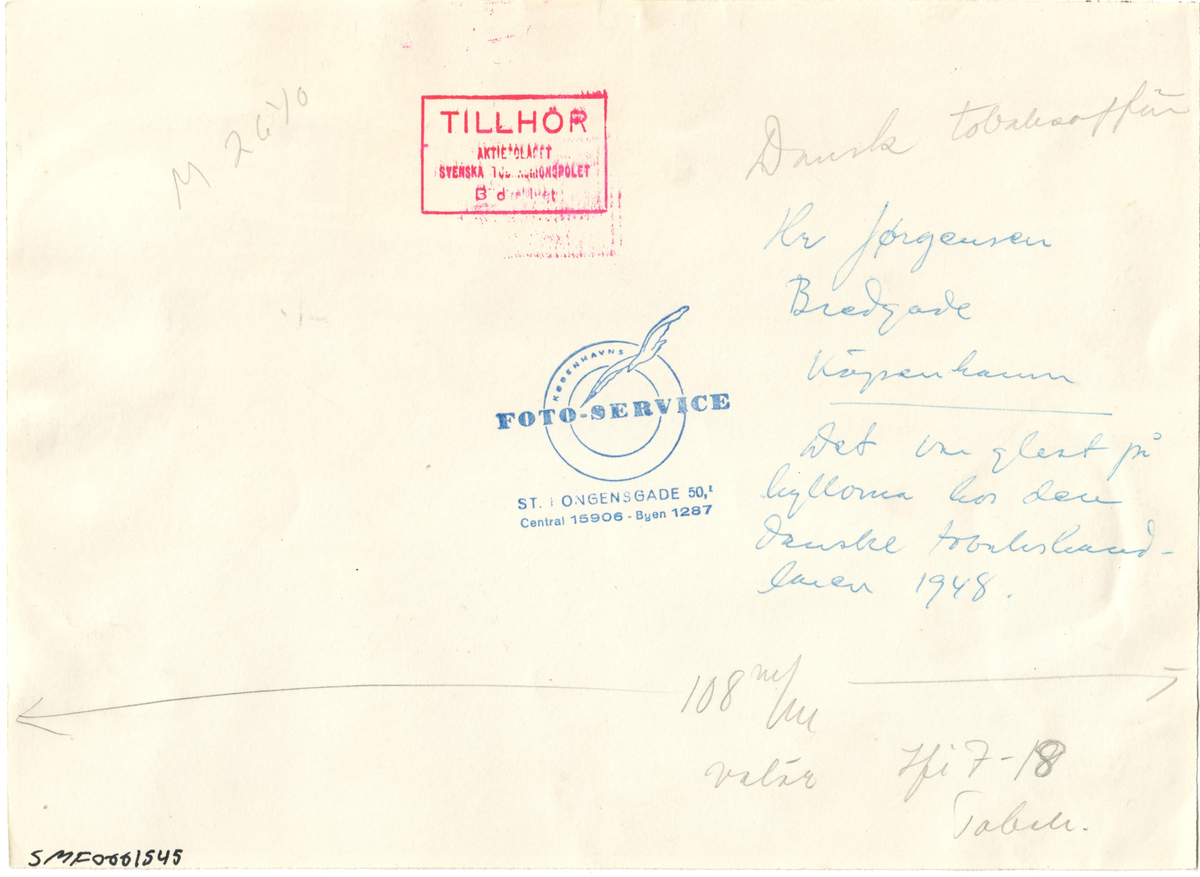 M 2640
TILLHÖR
AKTIEBOLAGET
SVENSKA TOBAKSMONOPOLET
Dansk tobaksaffär
Hr Jørgensen
Bredgade
Köpenhamn
KØBENHAVNS
FOTO-SERVICE
ST. ONGENSGADE 50,¹
Central 15906 - Byen 1287
Det var glest på
hyllorna hos den
Danske tobakshand-
laren 1948.
108 m/m
valör
7-18
Tobak.
SMF0001545